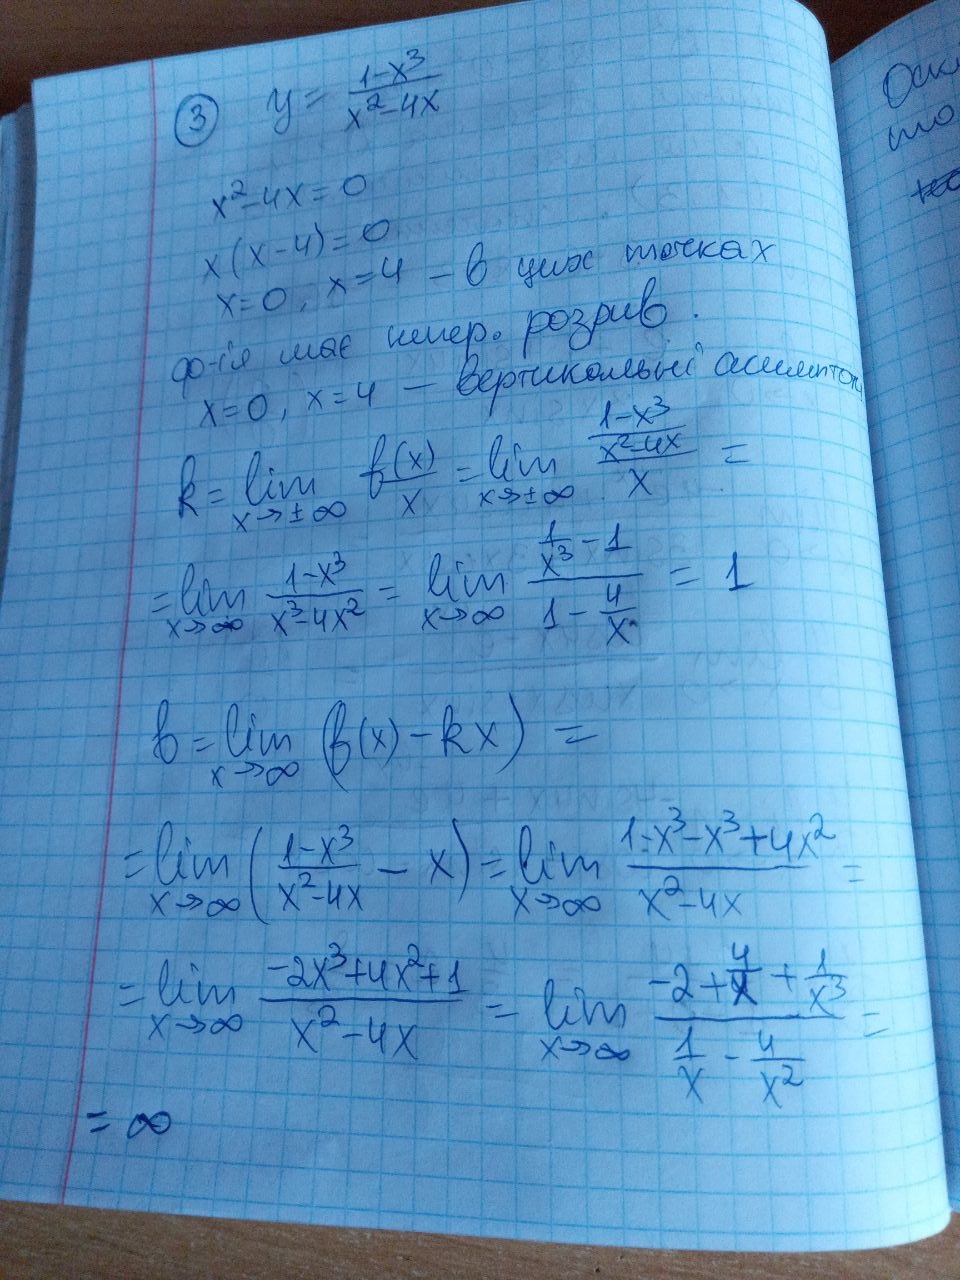 ③ y = (1-x³)/(x²-4x)
x²-4x=0
x(x-4)=0
x=0, x=4 – в цих точках
ф-ія має непер. розрив.
x=0, x=4 – вертикольні асимптоти
k = lim x→±∞ f(x)/x = lim x→±∞ ((1-x³)/(x²-4x))/x =
= lim x→∞ (1-x³)/(x³-4x²) = lim x→∞ (1/x³ - 1)/(1 - 4/x) = 1
b = lim x→∞ (f(x) - kx) =
= lim x→∞ ((1-x³)/(x²-4x) - x) = lim x→∞ (1-x³-x³+4x²)/(x²-4x) =
= lim x→∞ (-2x³+4x²+1)/(x²-4x) = lim x→∞ (-2+4/x+1/x³)/(1/x - 4/x²) =
= ∞